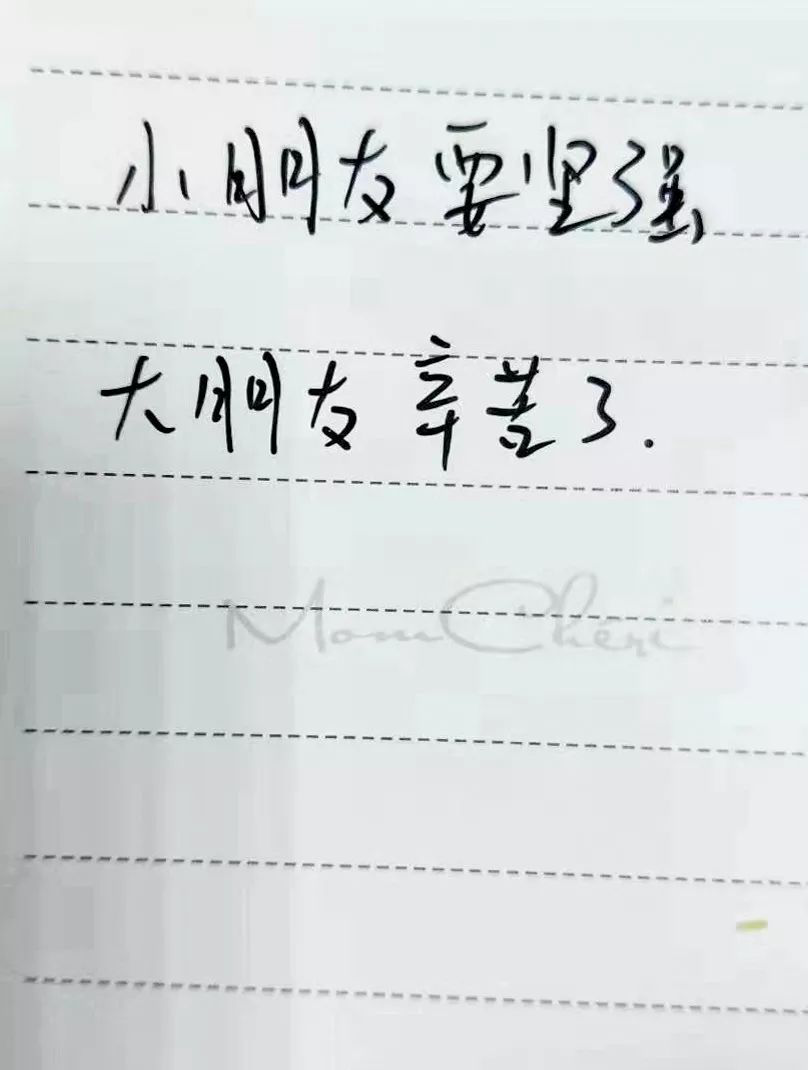 小朋友要坚强
大朋友辛苦了.
Mom Chéri